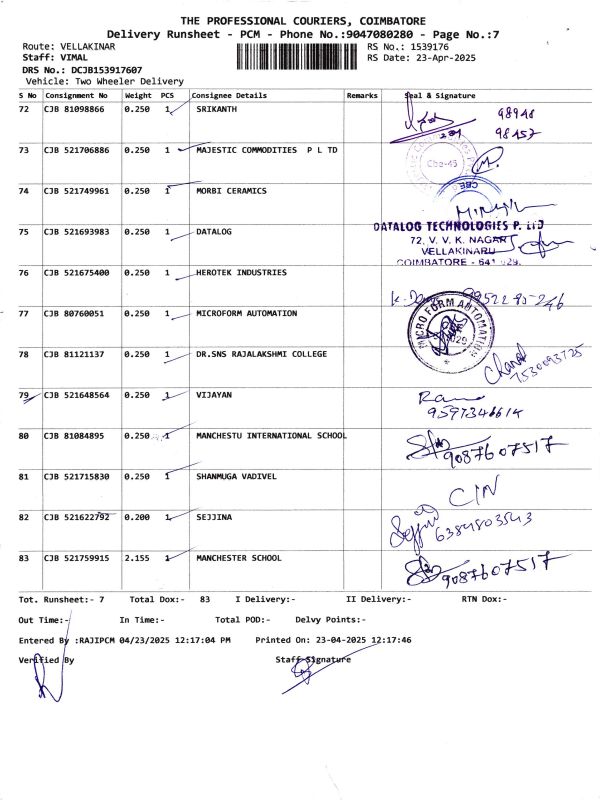 THE PROFESSIONAL COURIERS, COIMBATORE
Delivery Runsheet - PCM - Phone No.:9047080280 - Page No.:7
Route: VELLAKINAR RS No.: 1539176
Staff: VIMAL RS Date: 23-Apr-2025
DRS No.: DCJB153917607
Vehicle: Two Wheeler Delivery
S No Consignment No Weight PCS Consignee Details Remarks Seal & Signature
72 CJB 81098866 0.250 1 SRIKANTH
98457
73 CJB 521706886 0.250 1 MAJESTIC COMMODITIES P L TD
Cbe-45
74 CJB 521749961 0.250 1 MORBI CERAMICS
CBE
75 CJB 521693983 0.250 1 DATALOG
DATALOG TECHNOLOGIES P. LTD
72, V. V. K. NAGAR
VELLAKINARU
COIMBATORE - 641 029.
76 CJB 521675400 0.250 1 HEROTEK INDUSTRIES
77 CJB 80760051 0.250 1 MICROFORM AUTOMATION
MICRO FORM AUTOMATION
78 CJB 81121137 0.250 1 DR.SNS RAJALAKSHMI COLLEGE
79 CJB 521648564 0.250 1 VIJAYAN
9597346614
80 CJB 81084895 0.250 1 MANCHESTU INTERNATIONAL SCHOOL
9087607517
81 CJB 521715830 0.250 1 SHANMUGA VADIVEL
82 CJB 521622792 0.200 1 SEJJINA
6384803543
83 CJB 521759915 2.155 1 MANCHESTER SCHOOL
9087607517
Tot. Runsheet:- 7 Total Dox:- 83 I Delivery:- II Delivery:- RTN Dox:-
Out Time:- In Time:- Total POD:- Delvy Points:-
Entered By :RAJIPCM 04/23/2025 12:17:04 PM Printed On: 23-04-2025 12:17:46
Verified By Staff Signature